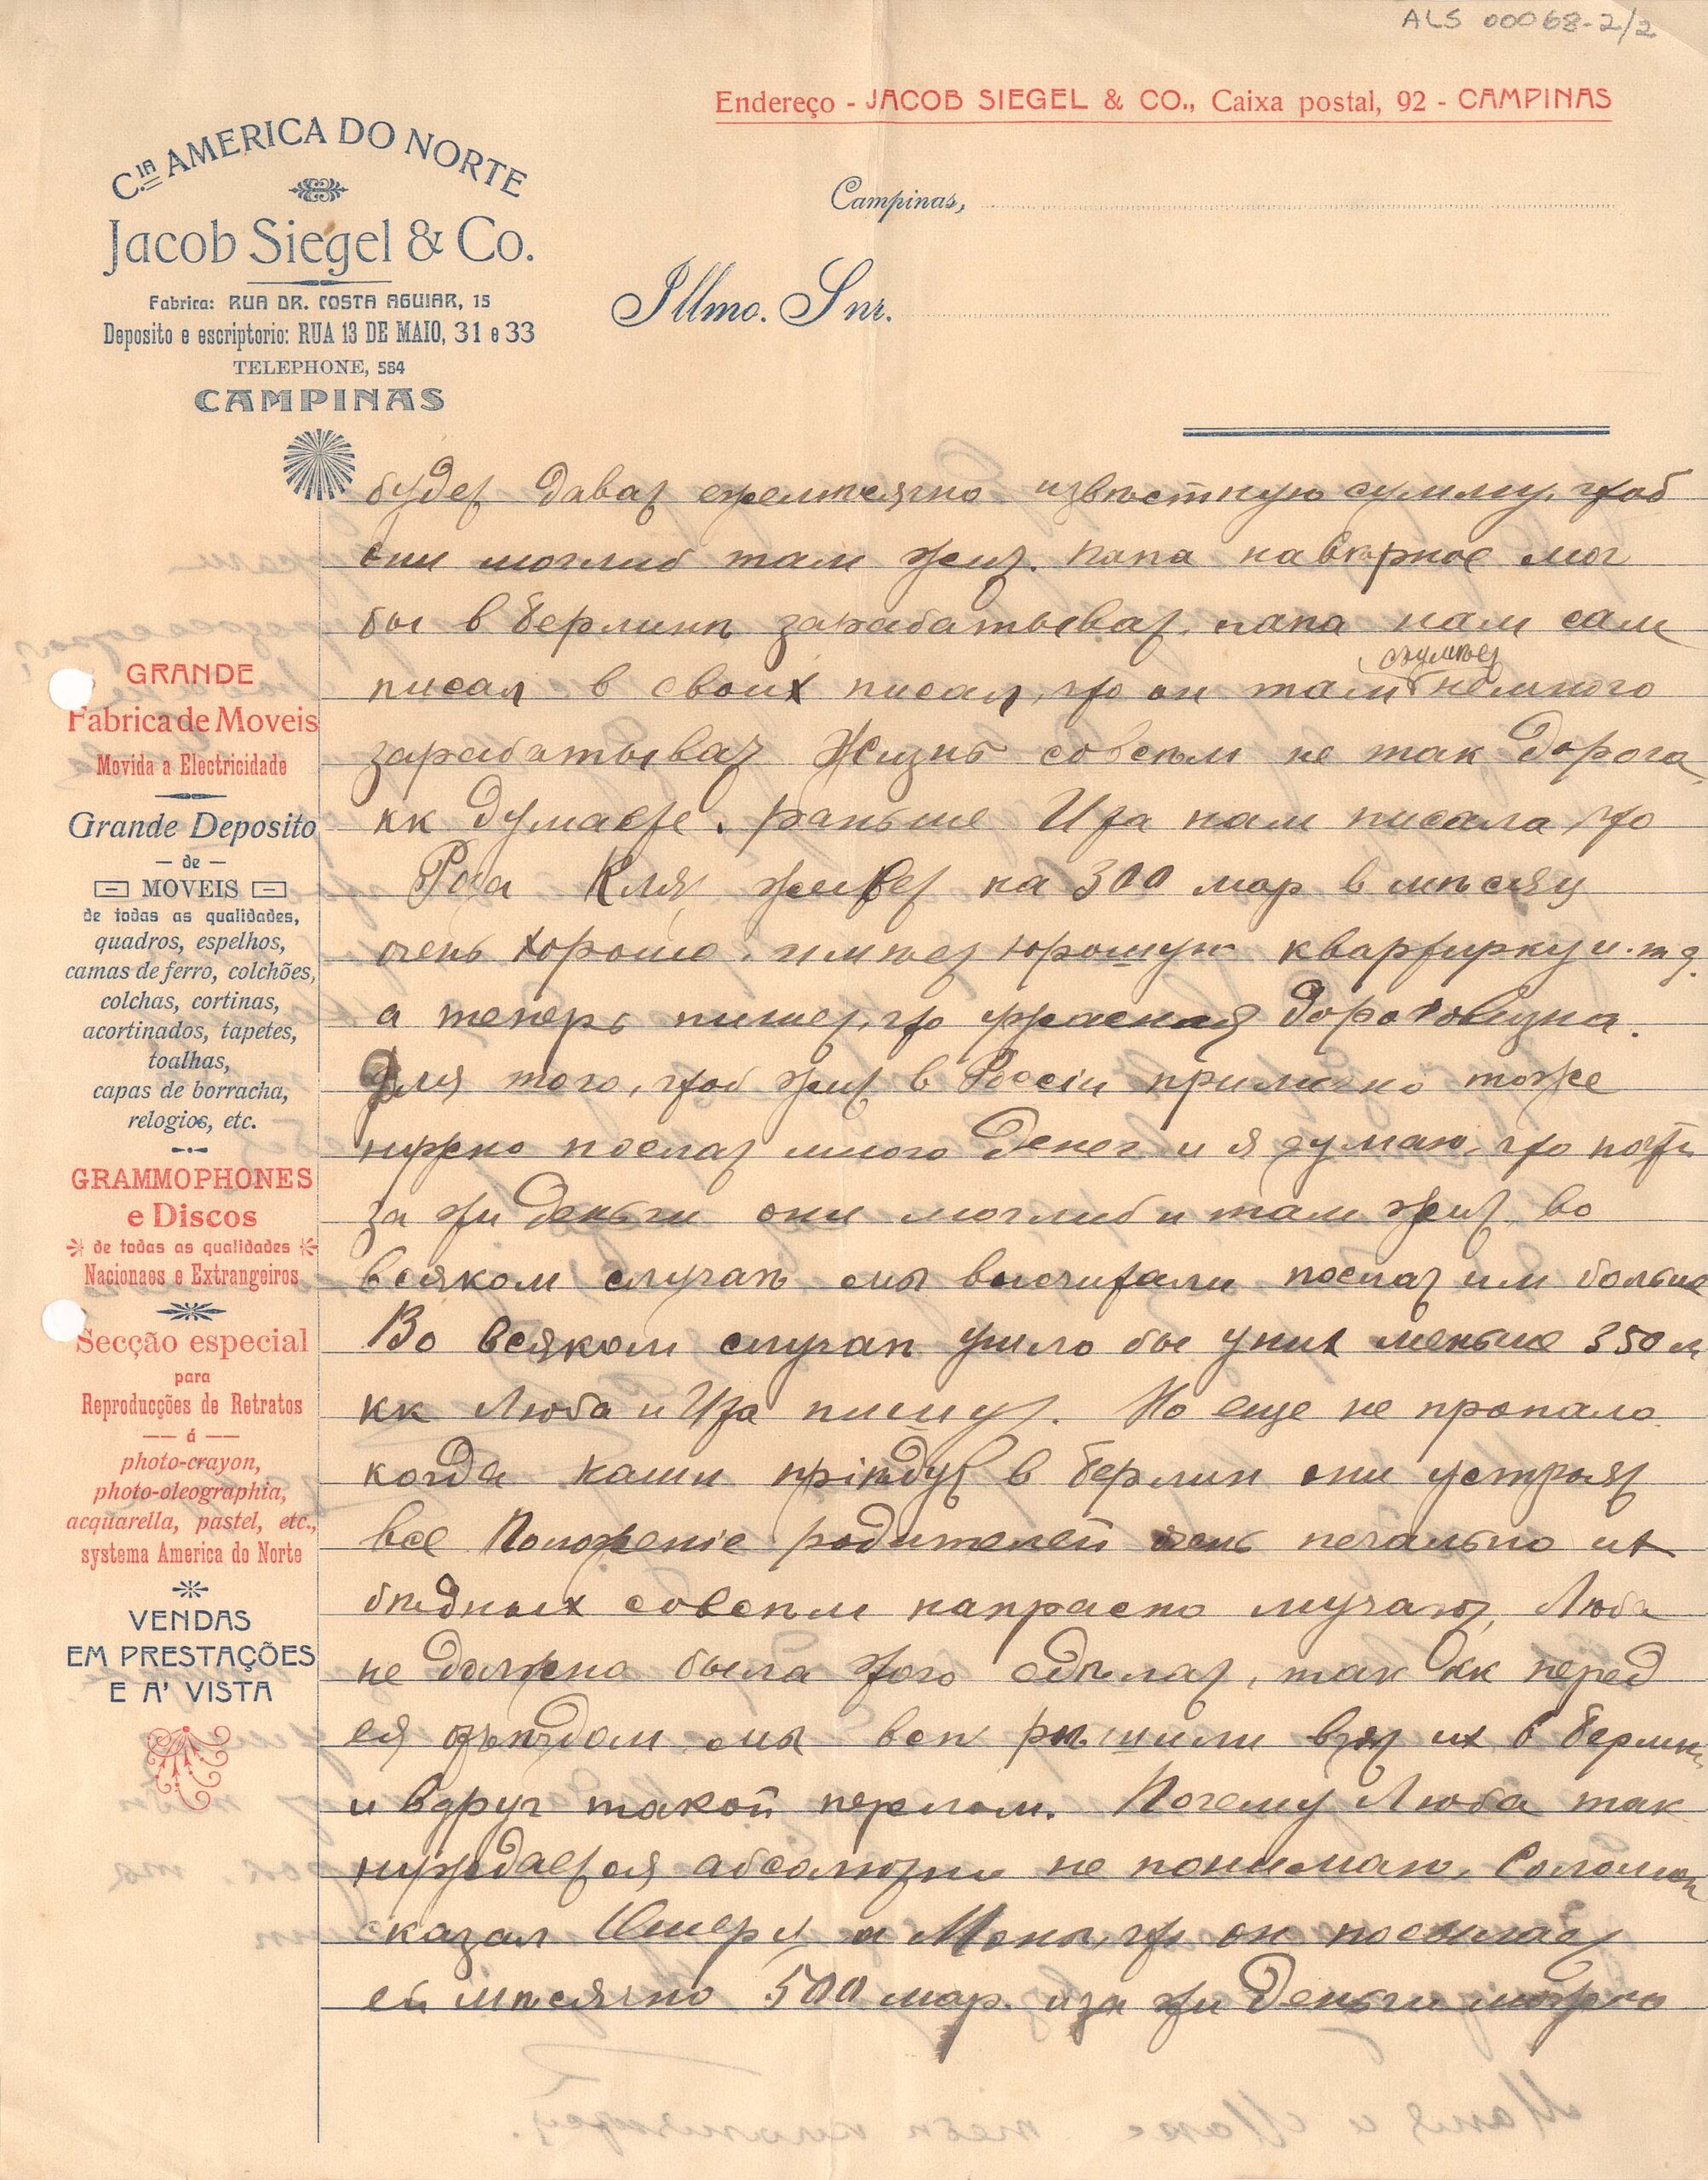 ALS 00068-2/2
Endereço - JACOB SIEGEL & CO., Caixa postal, 92 - CAMPINAS
C.IA AMERICA DO NORTE
Jacob Siegel & Co.
Fabrica: RUA DR. COSTA AGUIAR, 15
Deposito e escriptorio: RUA 13 DE MAIO, 31 e 33
TELEPHONE, 564
CAMPINAS
Campinas,
Illmo. Snr.
GRANDE
Fabrica de Moveis
Movida a Electricidade
Grande Deposito
— de —
MOVEIS
de todas as qualidades,
quadros, espelhos,
camas de ferro, colchões,
colchas, cortinas,
acortinados, tapetes,
toalhas,
capas de borracha,
relogios, etc.
GRAMMOPHONES
e Discos
de todas as qualidades
Nacionaes e Extrangeiros
Secção especial
para
Reproducções de Retratos
— á —
photo-crayon,
photo-oleographia,
acquarella, pastel, etc.,
systema America do Norte
VENDAS
EM PRESTAÇÕES
E A' VISTA
будет давать ежемѣсячно извѣстную сумму, чтоб
они моглиб там жить. папа навѣрное мог
бы в берлинѣ зарабатывать. папа нам сам
писал в своих писал, что он там сумѣет немного
зарабатывать Жизнь совсѣм не так дорога,
кк думаете. раньше Иза нам писала что
Роза Кляч живет на 300 мар в мѣсяц
очень хорошо, имѣет хорошую квартирку и. т д.
а теперь пишет, что ужасная дороговизна.
Для того, чтоб жить в Россіи прилично тоже
нужно послать много денег и я думаю, что почти
за эти деньги они моглиб и там жить, во
всяком случаѣ мы высчитали послать им больше
Во всяком случаѣ ушло бы у них меньше 350 м
кк Люба и Иза пишут. Но еще не пропало
когда наши пріѣдут в берлин они устроят
все Положеніе родителей очень печально их
бѣдных совсѣм напрасно мучают, Люба
не должна была этого сдѣлать, так кк перед
ея отъѣздом мы всѣ рѣшили взять их в берлин
и вдруг такой перелом. Почему Люба так
нуждается абсолютно не понимаю, Соломон
сказал и Моны, что он посылает
ей мѣсячно 500 мар. и за эти деньги можно